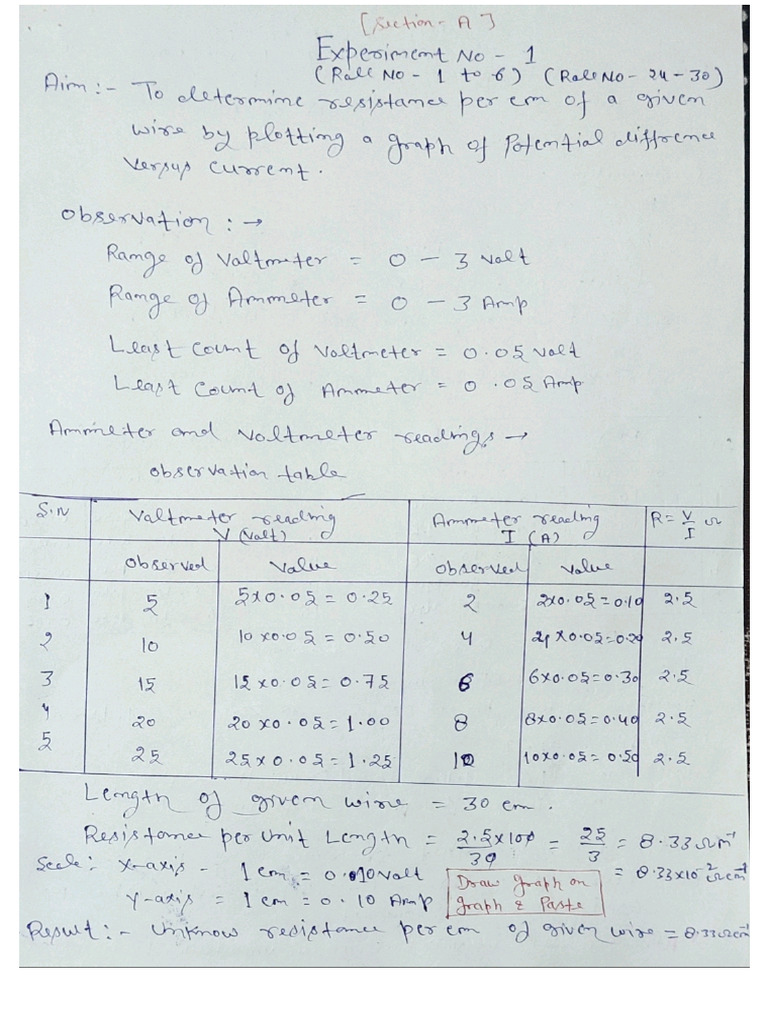 [Section - A]
Experiment No - 1
(Roll No - 1 to 6) (Roll No - 24 - 30)
Aim :- To determine resistance per cm of a given
wire by plotting a graph of Potential diffrence
versus current.
Observation : →
Range of Voltmeter = 0 - 3 Volt
Range of Ammeter = 0 - 3 Amp
Least Count of Voltmeter = 0.05 Volt
Least Count of Ammeter = 0.05 Amp
Ammeter and Voltmeter readings →
observation table
S.N Voltmeter reading V (Volt) Ammeter reading I (A) R = V/I Ω
Observed Value Observed Value
1 5 5x0.05 = 0.25 2 2x0.05=0.10 2.5
2 10 10x0.05 = 0.50 4 4x0.05=0.20 2.5
3 15 15x0.05 = 0.75 6 6x0.05=0.30 2.5
4 20 20x0.05 = 1.00 8 8x0.05=0.40 2.5
5 25 25x0.05 = 1.25 10 10x0.05=0.50 2.5
Length of given wire = 30 cm.
Resistance per Unit Length = 2.5x100/30 = 25/3 = 8.33 Ωm⁻¹
= 8.33x10⁻² Ωcm⁻¹
Scale: X-axis - 1 cm = 0.010 Volt
Y-axis = 1 cm = 0.10 Amp
Draw graph on
graph & Paste
Result :- Unknow resistance per cm of given wire = 8.33Ωcm⁻¹